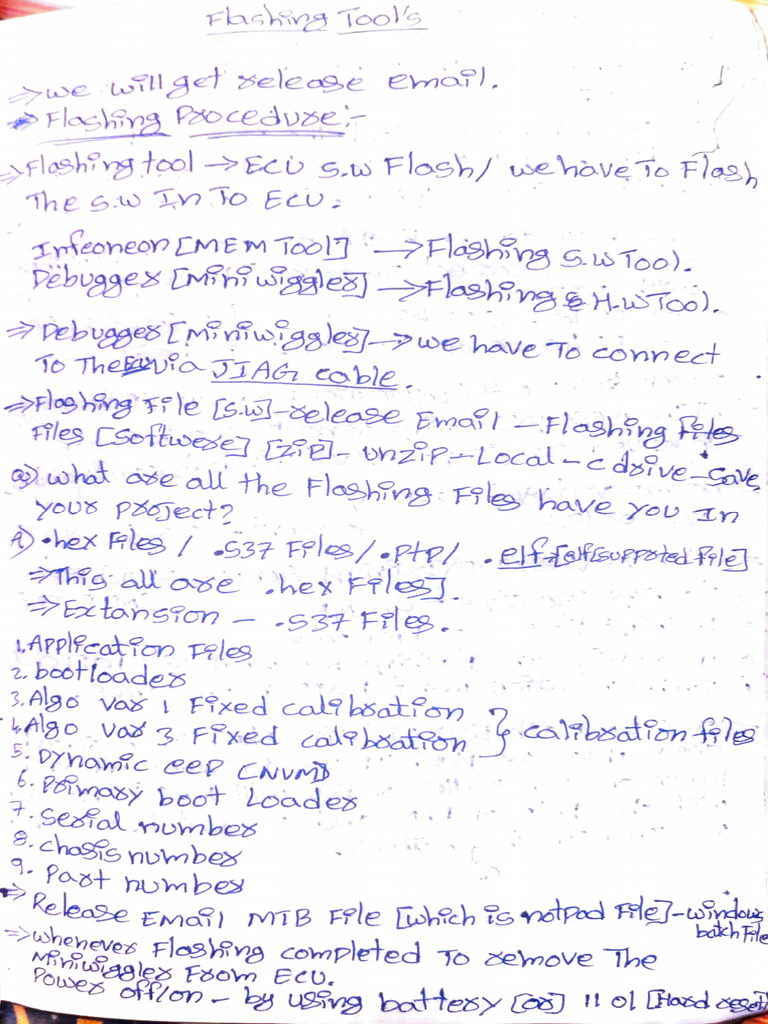 Flashing Tool's
⇒ we will get release email.
⇒ Flashing Procedure:-
⇒ Flashing tool → ECU S.W Flash / we have To Flash
The S.W In To ECU.
Infeoneon [MEM Tool] → Flashing S.W Tool.
Debugger [Miniwiggler] → Flashing H.W Tool.
⇒ Debugger [Miniwiggler] → we have To connect
To The via JTAG cable.
⇒ Flashing File [S.W] - release Email - Flashing Files
Files [Softwere] [Zip] - unzip - Local - c drive - Save
Q) what are all the Flashing Files have you In
your project?
A) .hex Files / .S37 Files / .PtP / .elf [elf supported File]
⇒ This all are .hex Files].
⇒ Extansion - .S37 Files.
1. Application Files
2. bootloader
3. Algo var 1 Fixed calibration
4. Algo var 3 Fixed calibration } calibration files
5. Dynamic eep (NVM)
6. Primary boot Loader
7. Serial number
8. chasis number
9. Part number
⇒ Release Email MTB File [which is notpad File] - windows
batch File
⇒ whenever Flashing completed To remove The
Miniwiggler From ECU.
Power off/on - by using battery [or] 11 01 [Hard reset]